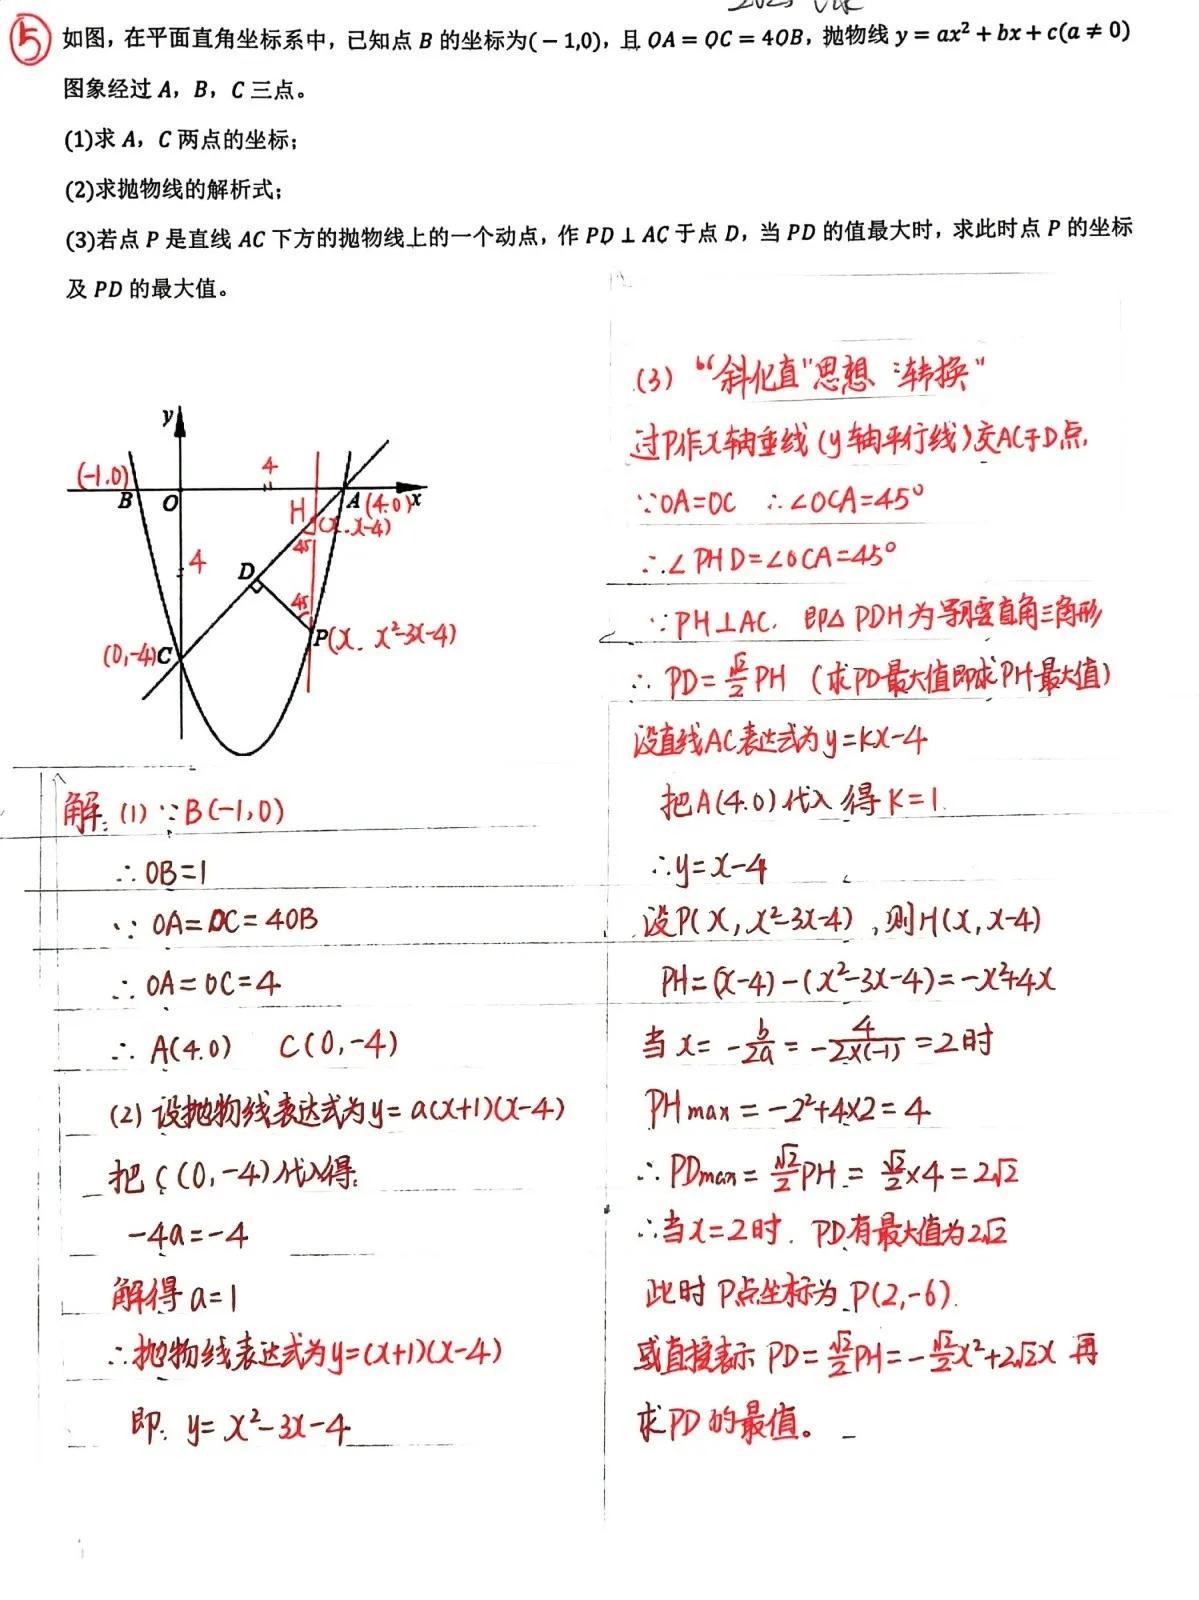 ⑤ 如图，在平面直角坐标系中，已知点 B 的坐标为(－1,0)，且 OA＝OC＝4OB，抛物线 y＝ax²＋bx＋c(a≠0)
图象经过 A，B，C 三点。
(1)求 A，C 两点的坐标；
(2)求抛物线的解析式；
(3)若点 P 是直线 AC 下方的抛物线上的一个动点，作 PD⊥AC 于点 D，当 PD 的值最大时，求此时点 P 的坐标
及 PD 的最大值。
y
(-1.0)
4
B
O
H
A
(4.0)
x
(x.x-4)
45
4
D
45
P(x. x²-3x-4)
(0,-4)
C
解: (1) ∵B(-1,0)
∴OB=1
∵ OA=OC=4OB
∴ OA=OC=4
∴ A(4.0) C(0,-4)
(2) 设抛物线表达式为y=a(x+1)(x-4)
把C(0,-4)代入得:
-4a=-4
解得 a=1
∴抛物线表达式为y=(x+1)(x-4)
即: y=x²-3x-4
(3) “斜化直”思想 转换”
过P作x轴垂线(y轴平行线)交AC于D点.
∵OA=OC ∴∠OCA=45°
∴∠PHD=∠OCA=45°
∵PH⊥AC. 即△PDH为等腰直角三角形
∴ PD=√2/2 PH (求PD最大值即求PH最大值)
设直线AC表达式为y=kx-4
把A(4.0)代入得K=1.
∴y=x-4
设P(x,x²-3x-4),则H(x,x-4)
PH=(x-4)-(x²-3x-4)=-x²+4x
当x=-b/2a=-4/2×(-1)=2时
PHmax=-2²+4×2=4
∴PDmax=√2/2 PH=√2/2×4=2√2
∴当x=2时. PD有最大值为2√2
此时P点坐标为P(2,-6).
或直接表示 PD=√2/2 PH=-√2/2 x²+2√2x 再
求PD的最值。